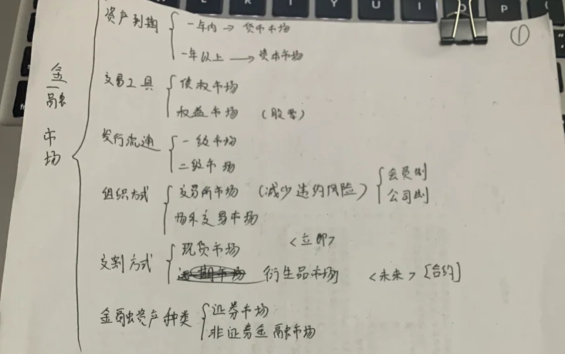 ①
金融市场
资产到期
一年内 → 货币市场
一年以上 → 资本市场
交易工具
债权市场
权益市场 (股票)
发行流通
一级市场
二级市场
组织方式
交易所市场 (减少违约风险)
会员制
公司制
场外交易市场
交割方式
现货市场 <立即>
衍生品市场 <未来> [合约]
金融资产种类
证券市场
非证券金融市场